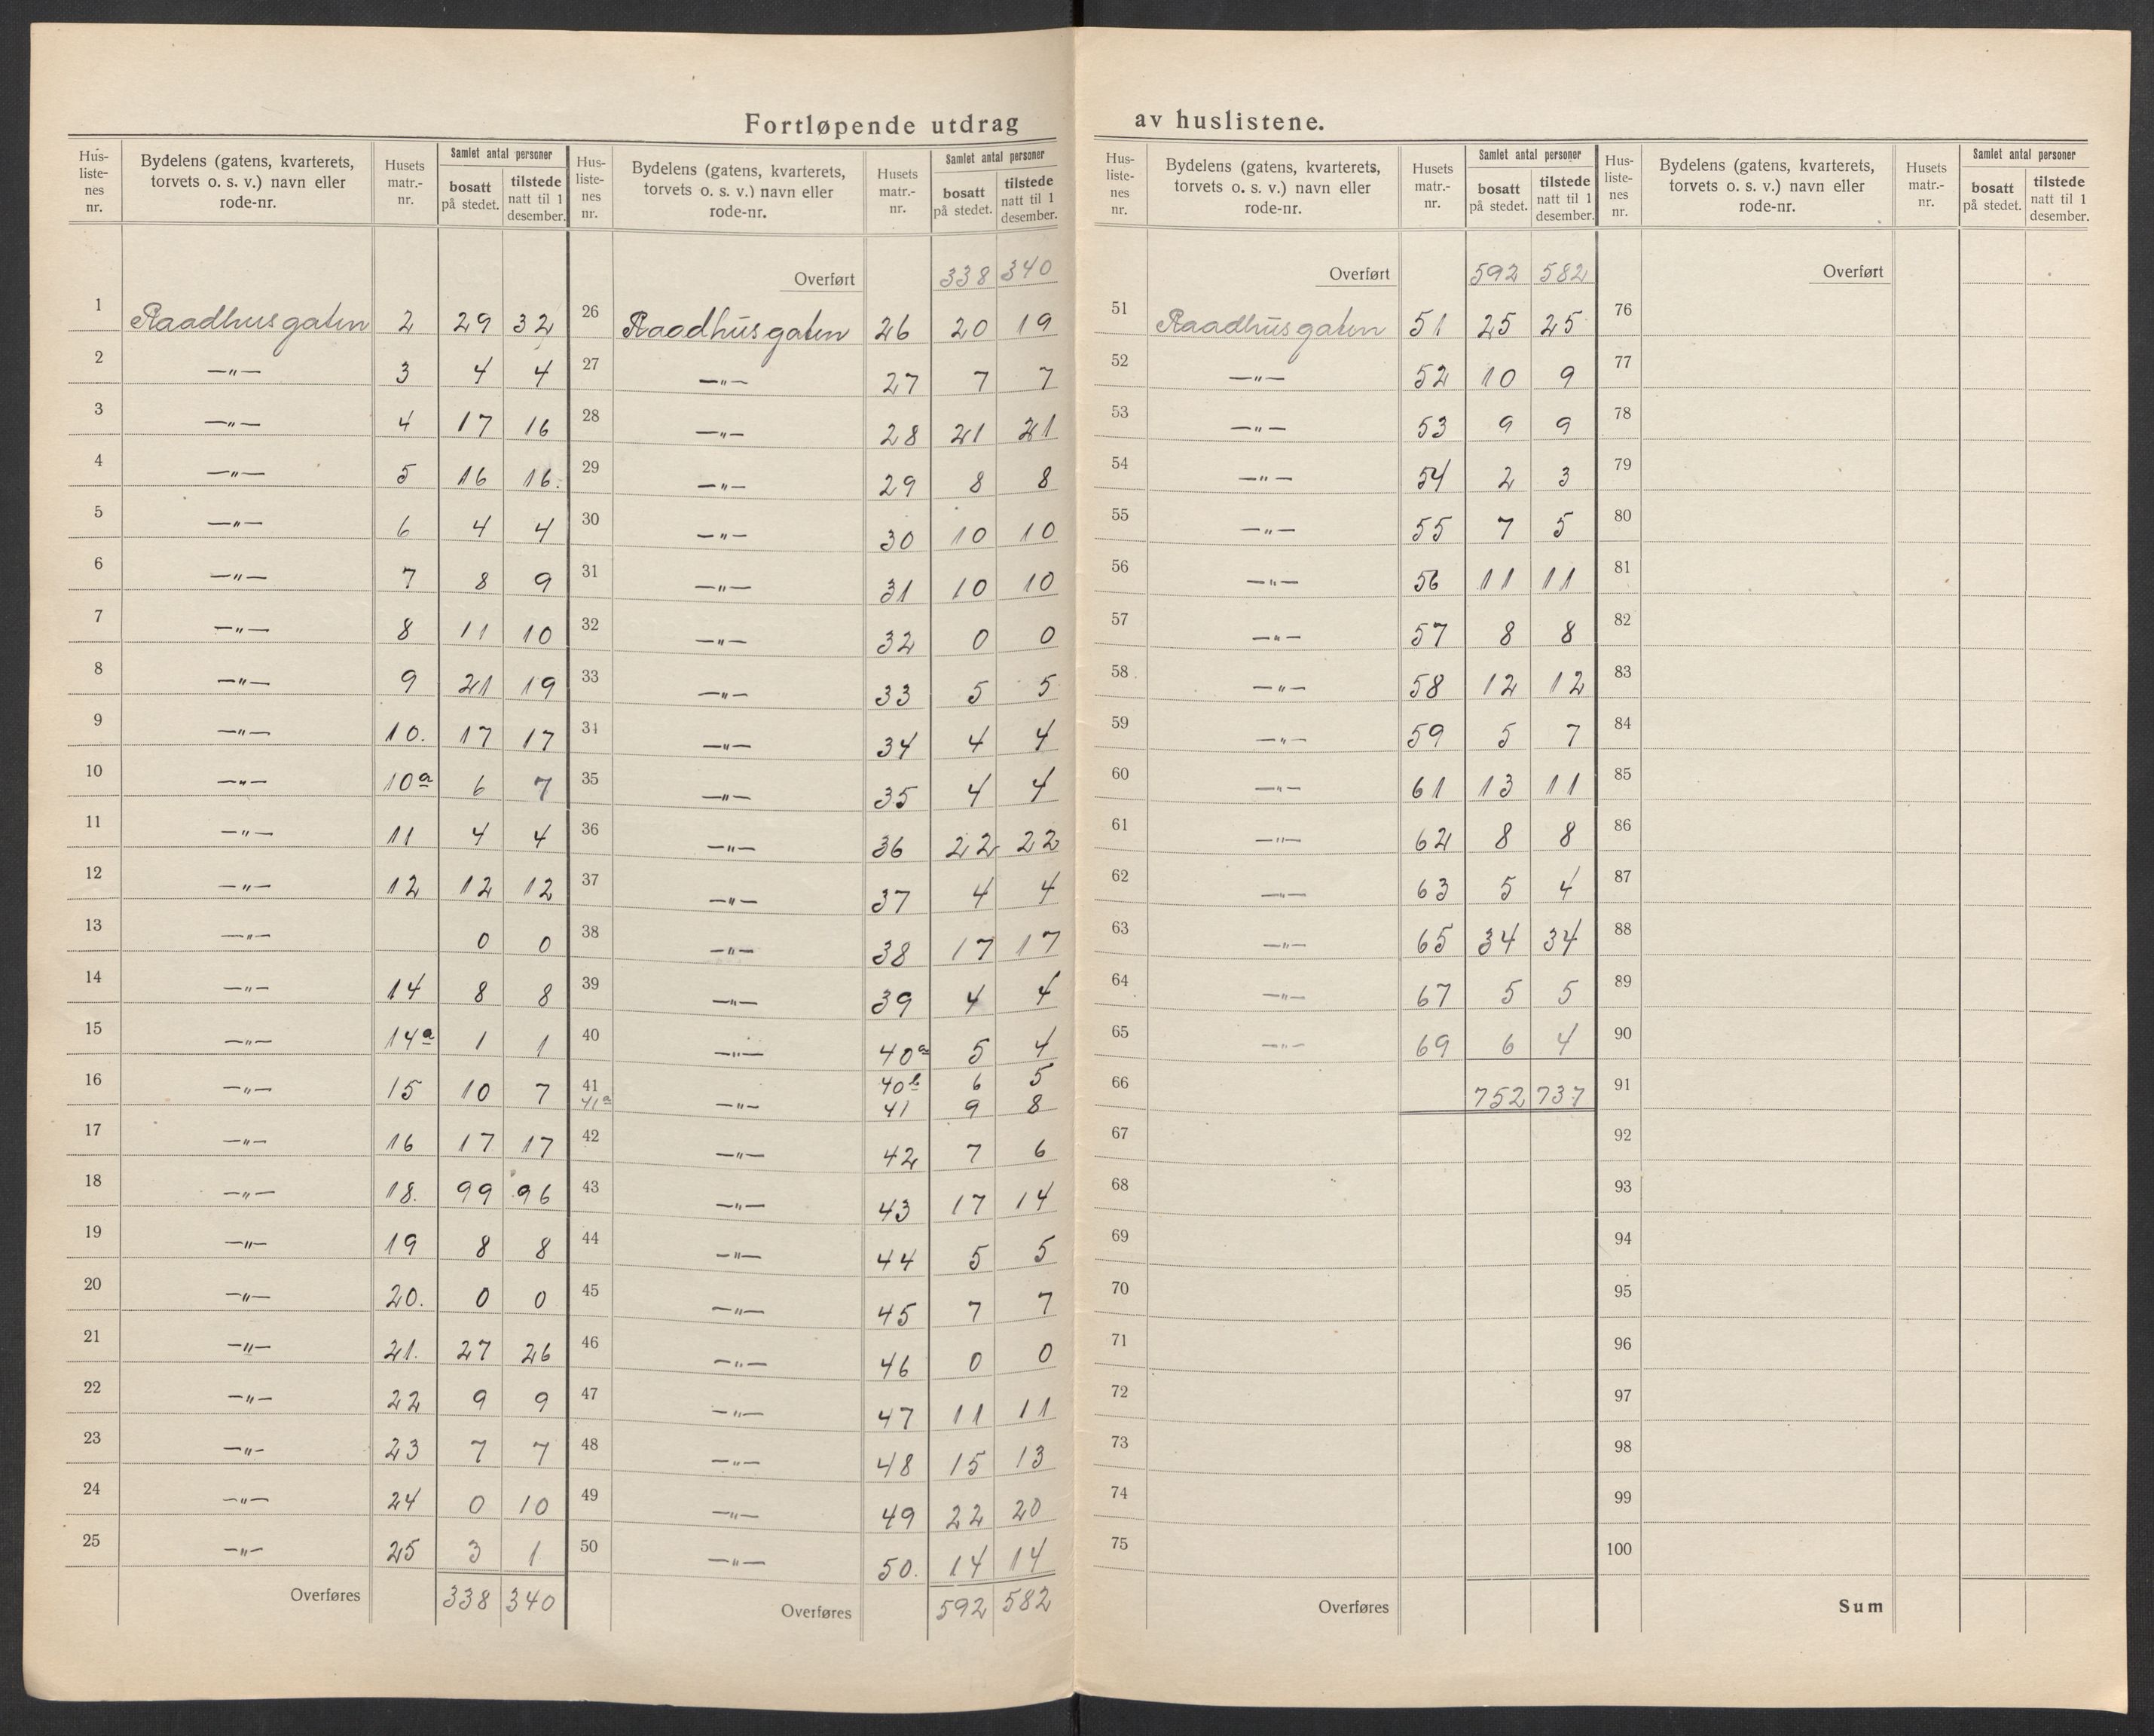 Fortløpende utdrag av huslistene.
Hus-liste-nes nr. | Bydelens (gatens, kvarterets, torvets o. s. v.) navn eller rode-nr. | Husets matr.-nr. | Samlet antal personer bosatt på stedet. | tilstede natt til 1 desember.
1 Raadhusgaten 2 29 32
2 —„— 3 4 4
3 —„— 4 17 16
4 —„— 5 16 16.
5 —„— 6 4 4
6 —„— 7 8 9
7 —„— 8 11 10
8 —„— 9 21 19
9 —„— 10. 17 17
10 —„— 10a 6 7
11 —„— 11 4 4
12 —„— 12 12 12
13 —„— 0 0
14 —„— 14 8 8
15 —„— 14a 1 1
16 —„— 15 10 7
17 —„— 16 17 17
18 —„— 18. 99 96
19 —„— 19 8 8
20 —„— 20. 0 0
21 —„— 21. 27 26
22 —„— 22 9 9
23 —„— 23 7 7
24 —„— 24 0 10
25 —„— 25 3 1
Overføres 338 340
Hus-liste-nes nr. | Bydelens (gatens, kvarterets, torvets o. s. v.) navn eller rode-nr. | Husets matr.-nr. | Samlet antal personer bosatt på stedet. | tilstede natt til 1 desember.
Overført 338 340
26 Raadhusgaten 26 20 19
27 —„— 27 7 7
28 —„— 28 21 21
29 —„— 29 8 8
30 —„— 30 10 10
31 —„— 31 10 10
32 —„— 32 0 0
33 —„— 33 5 5
34 —„— 34 4 4
35 —„— 35 4 4
36 —„— 36 22 22
37 —„— 37 4 4
38 —„— 38 17 17
39 —„— 39 4 4
40 —„— 40a 5 4
41 40b 6 5
41a —„— 41 9 8
42 —„— 42 7 6
43 —„— 43 17 14
44 —„— 44 5 5
45 —„— 45 7 7
46 —„— 46 0 0
47 —„— 47 11 11
48 —„— 48 15 13
49 —„— 49 22 20
50 —„— 50. 14 14
Overføres 592 582
Hus-liste-nes nr. | Bydelens (gatens, kvarterets, torvets o. s. v.) navn eller rode-nr. | Husets matr.-nr. | Samlet antal personer bosatt på stedet. | tilstede natt til 1 desember.
Overført 592 582
51 Raadhusgaten 51 25 25
52 —„— 52 10 9
53 —„— 53 9 9
54 —„— 54 2 3
55 —„— 55 7 5
56 —„— 56 11 11
57 —„— 57 8 8
58 —„— 58 12 12
59 —„— 59 5 7
60 —„— 61 13 11
61 —„— 62 8 8
62 —„— 63 5 4
63 —„— 65 34 34
64 —„— 67 5 5
65 —„— 69 6 4
66 752 737
67
68
69
70
71
72
73
74
75
Overføres
Hus-liste-nes nr. | Bydelens (gatens, kvarterets, torvets o. s. v.) navn eller rode-nr. | Husets matr.-nr. | Samlet antal personer bosatt på stedet. | tilstede natt til 1 desember.
Overført
76
77
78
79
80
81
82
83
84
85
86
87
88
89
90
91
92
93
94
95
96
97
98
99
100
Sum